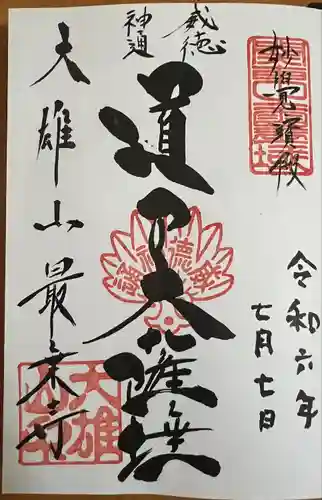 妙覚宝殿
令和六年
七月七日
威徳
神通
道了大薩埵
大雄山最乗寺
大雄山